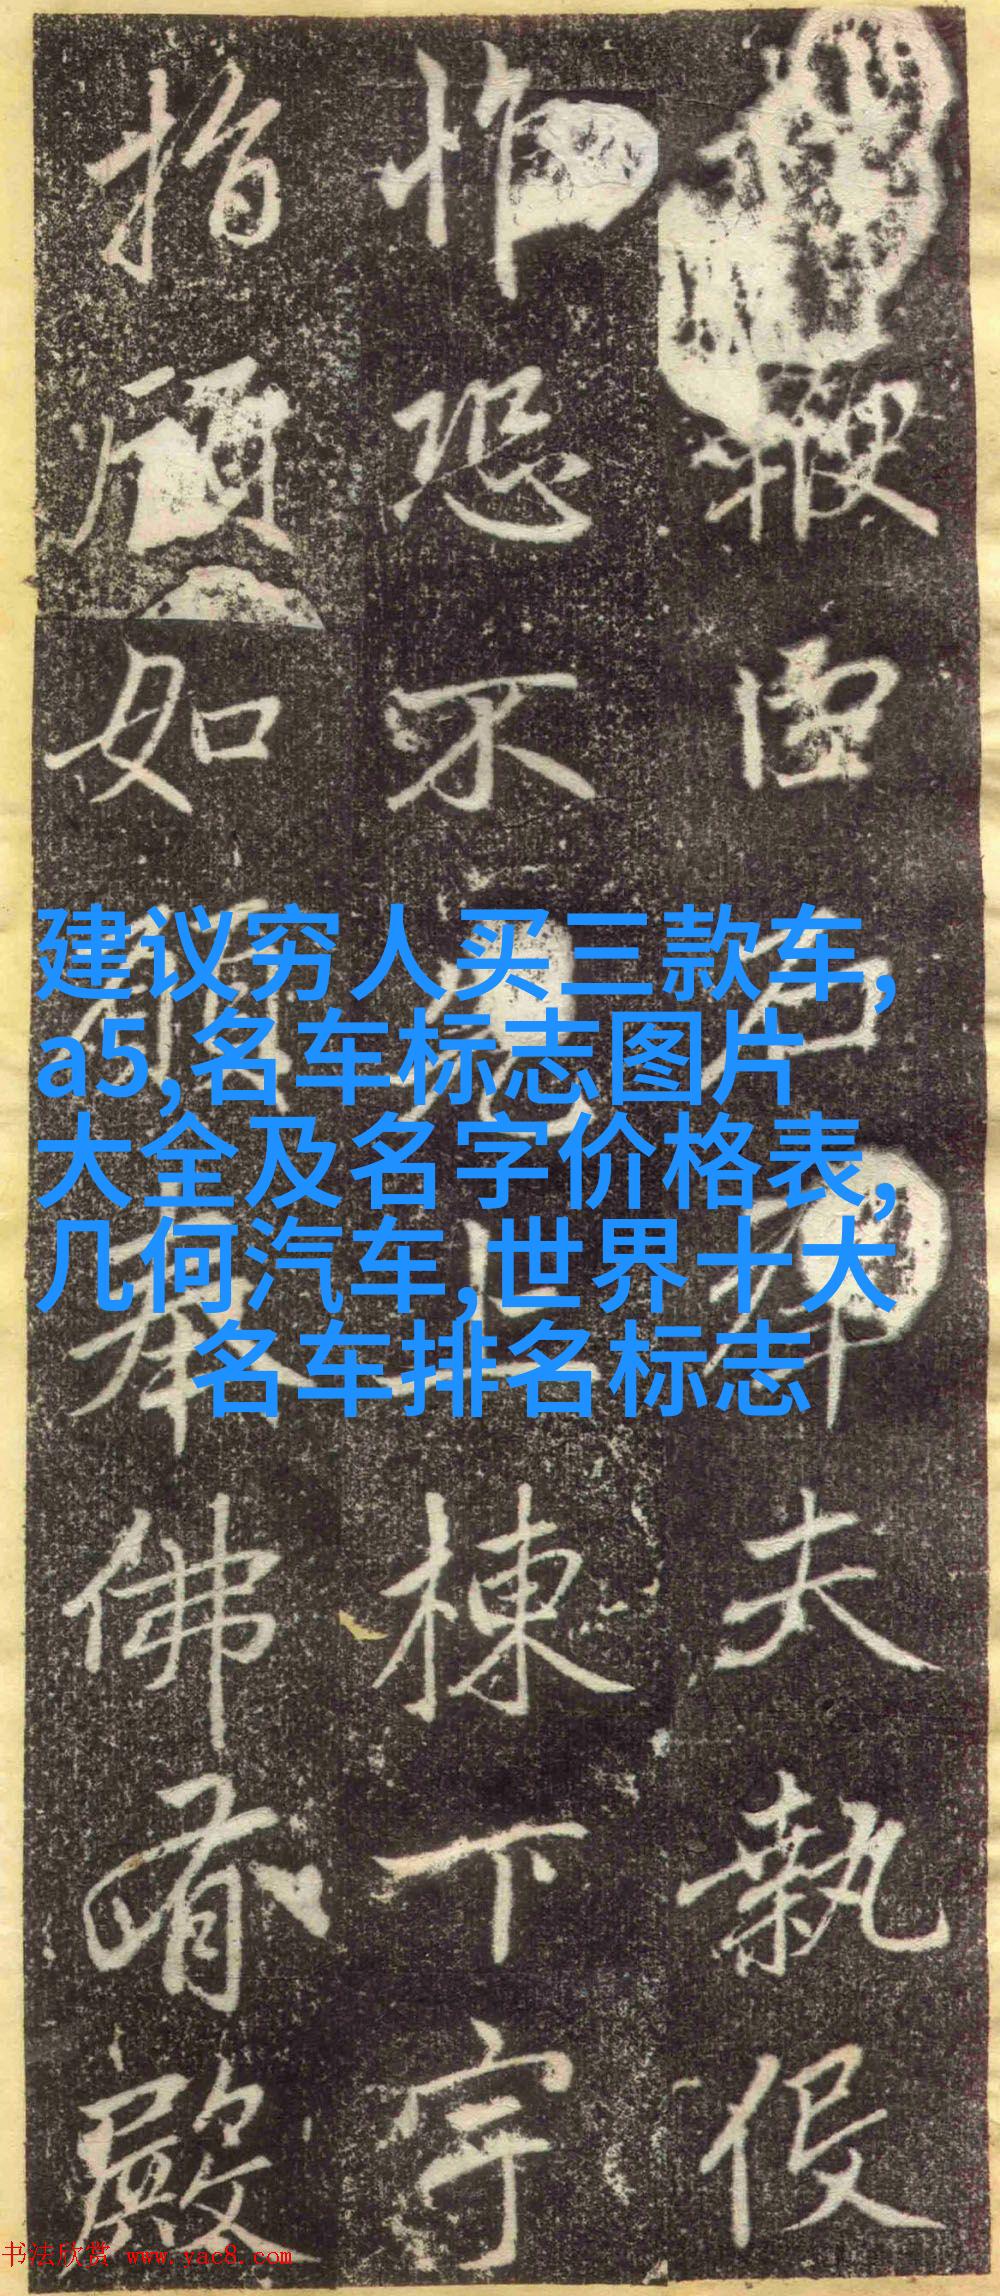 鞭石夫執役
怍恐不見上棟下宇
指顧如願奉佛有殿
建议穷人买三款车,
a5,名车标志图片
大全及名字价格表,
几何汽车,世界十大
名车排名标志
书法欣赏 www.yac8.com